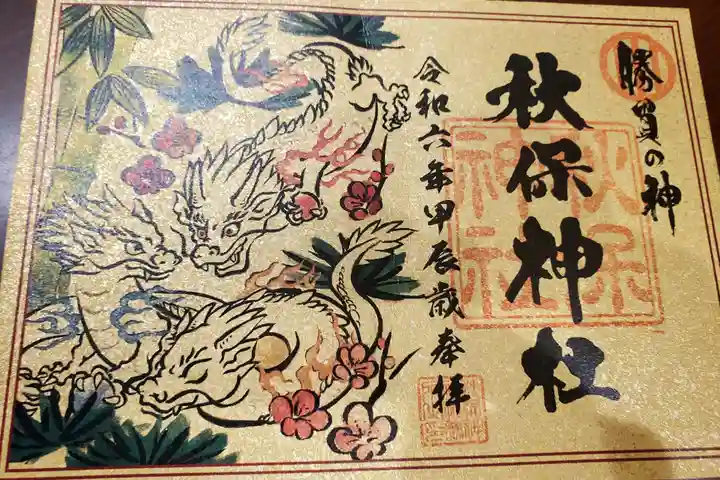 勝負の神
秋保神社
秋保
神社
令和六年甲辰歳奉拝